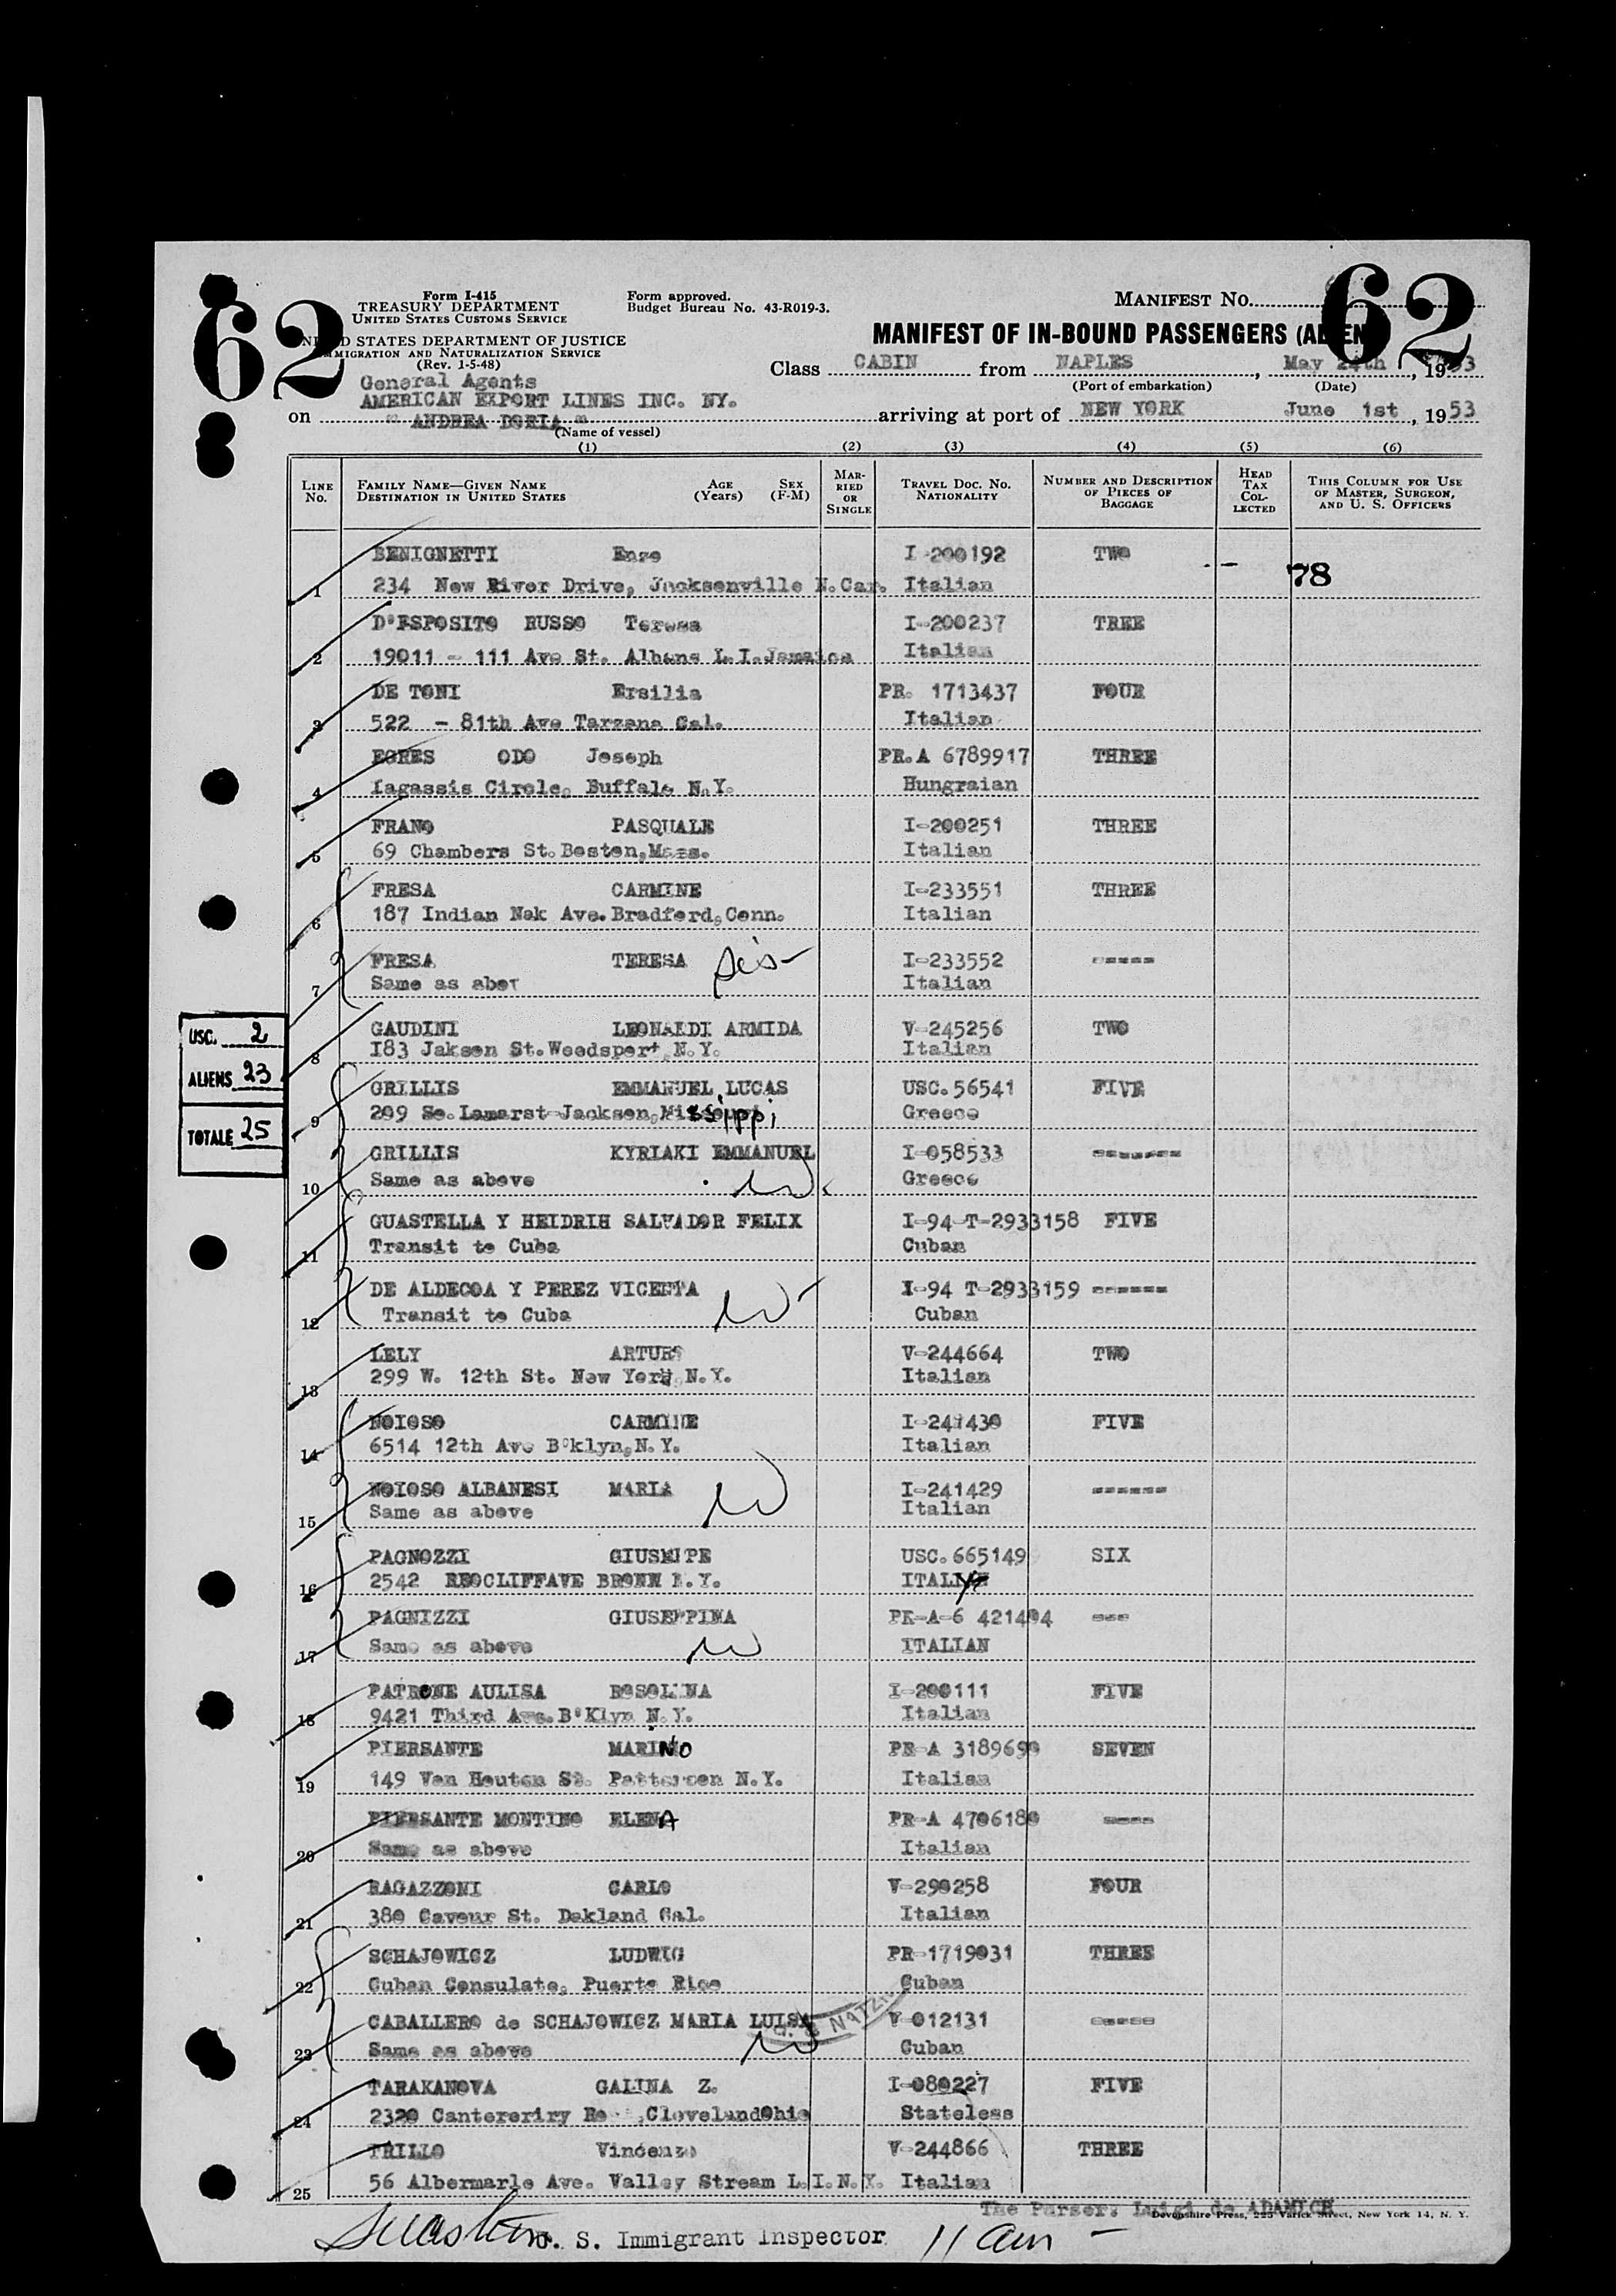 62
62
Form I-415
TREASURY DEPARTMENT
UNITED STATES CUSTOMS SERVICE
STATES DEPARTMENT OF JUSTICE
IMMIGRATION AND NATURALIZATION SERVICE
(Rev. 1-5-48)
Form approved.
Budget Bureau No. 43-R019-3.
MANIFEST No.
MANIFEST OF IN-BOUND PASSENGERS
Class CABIN from NAPLES, May 24th, 1953
(Port of embarkation) (Date)
General Agents
AMERICAN EXPORT LINES INC. NY.
on " ANDREA DORIA " arriving at port of NEW YORK June 1st, 1953
(Name of vessel)
(1) (2) (3) (4) (5) (6)
LINE No. FAMILY NAME—GIVEN NAME DESTINATION IN UNITED STATES AGE (Years) SEX (F-M) MARRIED OR SINGLE TRAVEL DOC. NO. NATIONALITY NUMBER AND DESCRIPTION OF PIECES OF BAGGAGE HEAD TAX COLLECTED THIS COLUMN FOR USE OF MASTER, SURGEON, AND U. S. OFFICERS
BENIGNETTI Enzo I-200192 TWO -- 78
1 234 New River Drive, Jacksenville N.Car. Italian
D'ESPOSITO RUSSO Teresa I-200237 TREE
2 19011 - 111 Ave St. Albans L.I.Jamaica Italian
DE TONI Ersilia PR. 1713437 FOUR
3 522 - 81th Ave Tarzana Cal. Italian
EGRES ODO Joseph PR.A 6789917 THREE
4 Iagassis Circle, Buffale N.Y. Hungraian
FRANO PASQUALE I-200251 THREE
5 69 Chambers St.Besten,Mass. Italian
FRESA CARMINE I-233551 THREE
6 187 Indian Nek Ave.Bradferd,Cenn. Italian
FRESA TERESA I-233552 -----
7 Same as aber Italian
GAUDINI LEONARDI ARMIDA V-245256 TWO
8 I83 Jaksen St.Weedspert N.Y. Italian
USC. 2
ALIENS 23
TOTALE 25
GRILLIS EMMANUEL LUCAS USC.56541 FIVE
9 209 Se.Lamarst Jacksen,Mississippi Greece
GRILLIS KYRIAKI EMMANUEL I-058533 -------
10 Same as above Greece
GUASTELLA Y HEIDRIH SALVADOR FELIX I-94-T-2933158 FIVE
11 Transit te Cuba Cuban
DE ALDECOA Y PEREZ VICENTA I-94 T-2933159 ------
12 Transit te Cuba Cuban
LELY ARTURS V-244664 TWO
13 299 W. 12th St. New York N.Y. Italian
NOIOSO CARMINE I-241430 FIVE
14 6514 12th Ave B'klyn,N.Y. Italian
NOIOSO ALBANESI MARIA I-241429 ------
15 Same as above Italian
PAGNOZZI GIUSEIPE USC.665149 SIX
16 2542 REOCLIFFAVE BRONX N.Y. ITALY
PAGNIZZI GIUSEPPINA PR-A-6 421494 ---
17 Same as abeve ITALIAN
PATRONE AULISA ROSOLINA I-200111 FIVE
18 9421 Third Ave.B'Klyn N.Y. Italian
PIERSANTE MARINO PR-A 3189699 SEVEN
19 149 Van Heuten St. Pattersen N.Y. Italian
PIERSANTE MONTINO ELENA PR-A 4706180 ----
20 Same as abeve Italian
RAGAZZONI CARLO V-290258 FOUR
21 380 Caveur St. Dakland Cal. Italian
SCHAJOWICZ LUDWIG PR-1719031 THREE
22 Cuban Censulate, Puerte Rice Cuban
CABALLERO de SCHAJOWICZ MARIA LUISA V-012131 -----
23 Same as abeve Cuban
TARAKANOVA GALINA Z. I-080227 FIVE
24 2320 Cantereriry ClevelandOhie Stateless
TRILLO Vincenzo V-244866 THREE
25 56 Albermarle Ave. Valley Stream L.I.N.Y. Italian
The Purser: Luigi de ADAMICH
Devonshire Press, 225 Varick Street, New York 14, N. Y.
U. S. Immigrant Inspector 11 am -